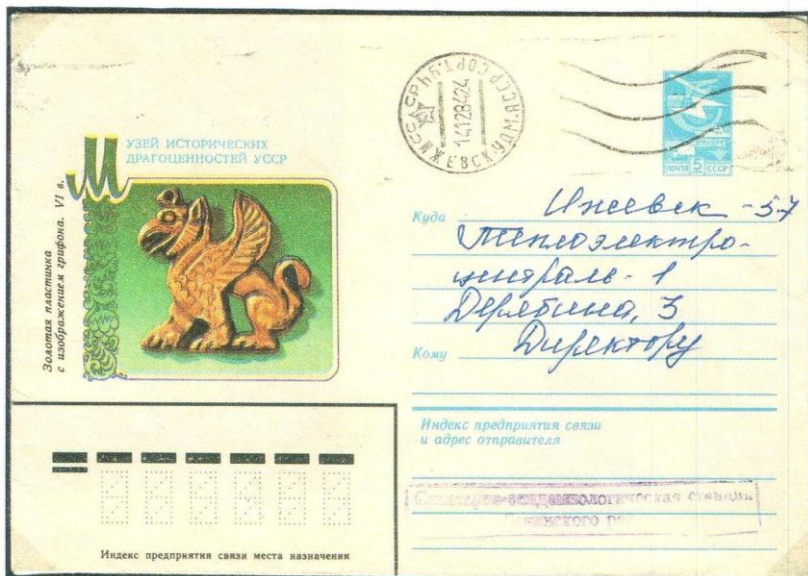 МУЗЕЙ ИСТОРИЧЕСКИХ
ДРАГОЦЕННОСТЕЙ УССР
Золотая пластинка
с изображением грифона. VI в.
ИЖЕВСК УДМ.АССР СОРТ.
14128424
ПОЧТА 5 СССР
Куда Ижевск - 57
Теплоэлектро-
централь - 1
Дерябина, 3
Кому Директору
Индекс предприятия связи
и адрес отправителя
Санитарно-эпидемиологическая станция
Индекс предприятия связи места назначения